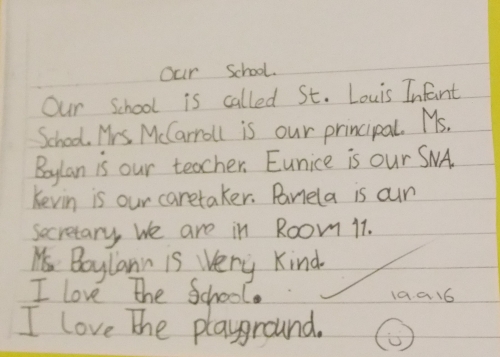 Our School.
Our School is called St. Louis Infant
School. Mrs. McCarroll is our principal. Ms.
Boylan is our teacher. Eunice is our SNA.
Kevin is our caretaker. Pamela is our
secretary. We are in Room 11.
Ms. Boylann is very kind.
I love the School.
19.9.16
I love the playground.